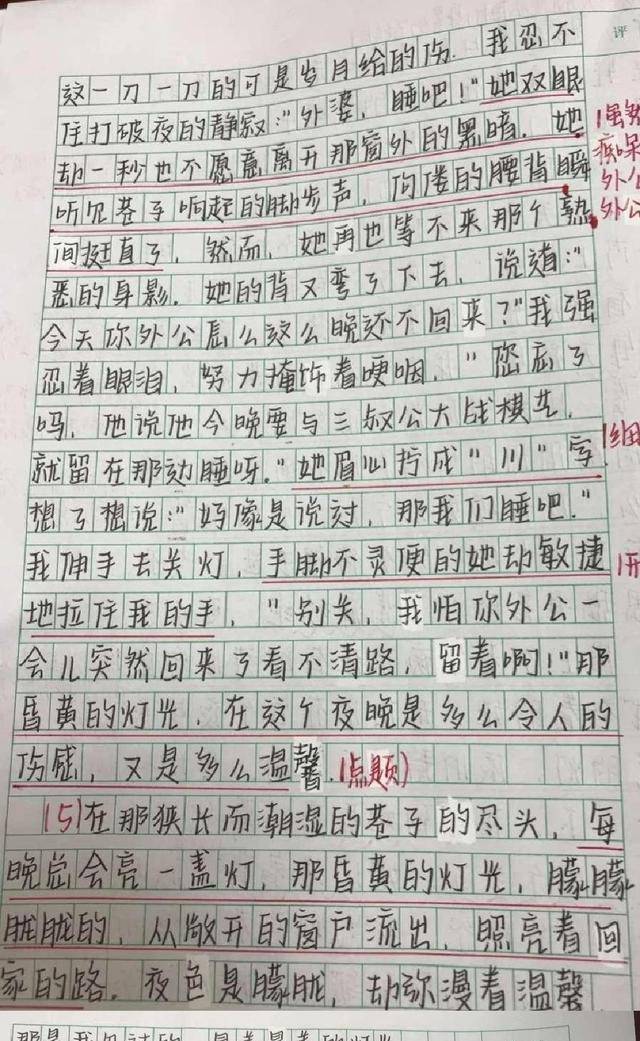 评
这一刀一刀的可是岁月给的伤. 我忍不
住打破夜的静寂:"外婆, 睡吧!"她双眼
却一秒也不愿意离开那窗外的黑暗. 她
听见巷子响起的脚步声, 佝偻的腰背瞬
间挺直了, 然而, 她再也等不来那个熟
悉的身影. 她的背又弯了下去, 说道:"
今天你外公怎么这么晚还不回来?"我强
忍着眼泪, 努力掩饰着哽咽, "您忘了
吗, 他说他今晚要与三叔公大战棋艺,
就留在那边睡呀."她眉心拧成"川"字,
想了想说:"好像是说过, 那我们睡吧."
我伸手去关灯, 手脚不灵便的她却敏捷
地拉住我的手, "别关, 我怕你外公一
会儿突然回来了看不清路, 留着啊!"那
昏黄的灯光, 在这个夜晚是多么令人的
伤感, 又是多么温馨.(点题)
(5)在那狭长而潮湿的巷子的尽头, 每
晚总会亮一盏灯, 那昏黄的灯光, 朦朦
胧胧的, 从敞开的窗户流出, 照亮着回
家的路. 夜色是朦胧, 却弥漫着温馨
虽然
痴呆
外公
外公
细